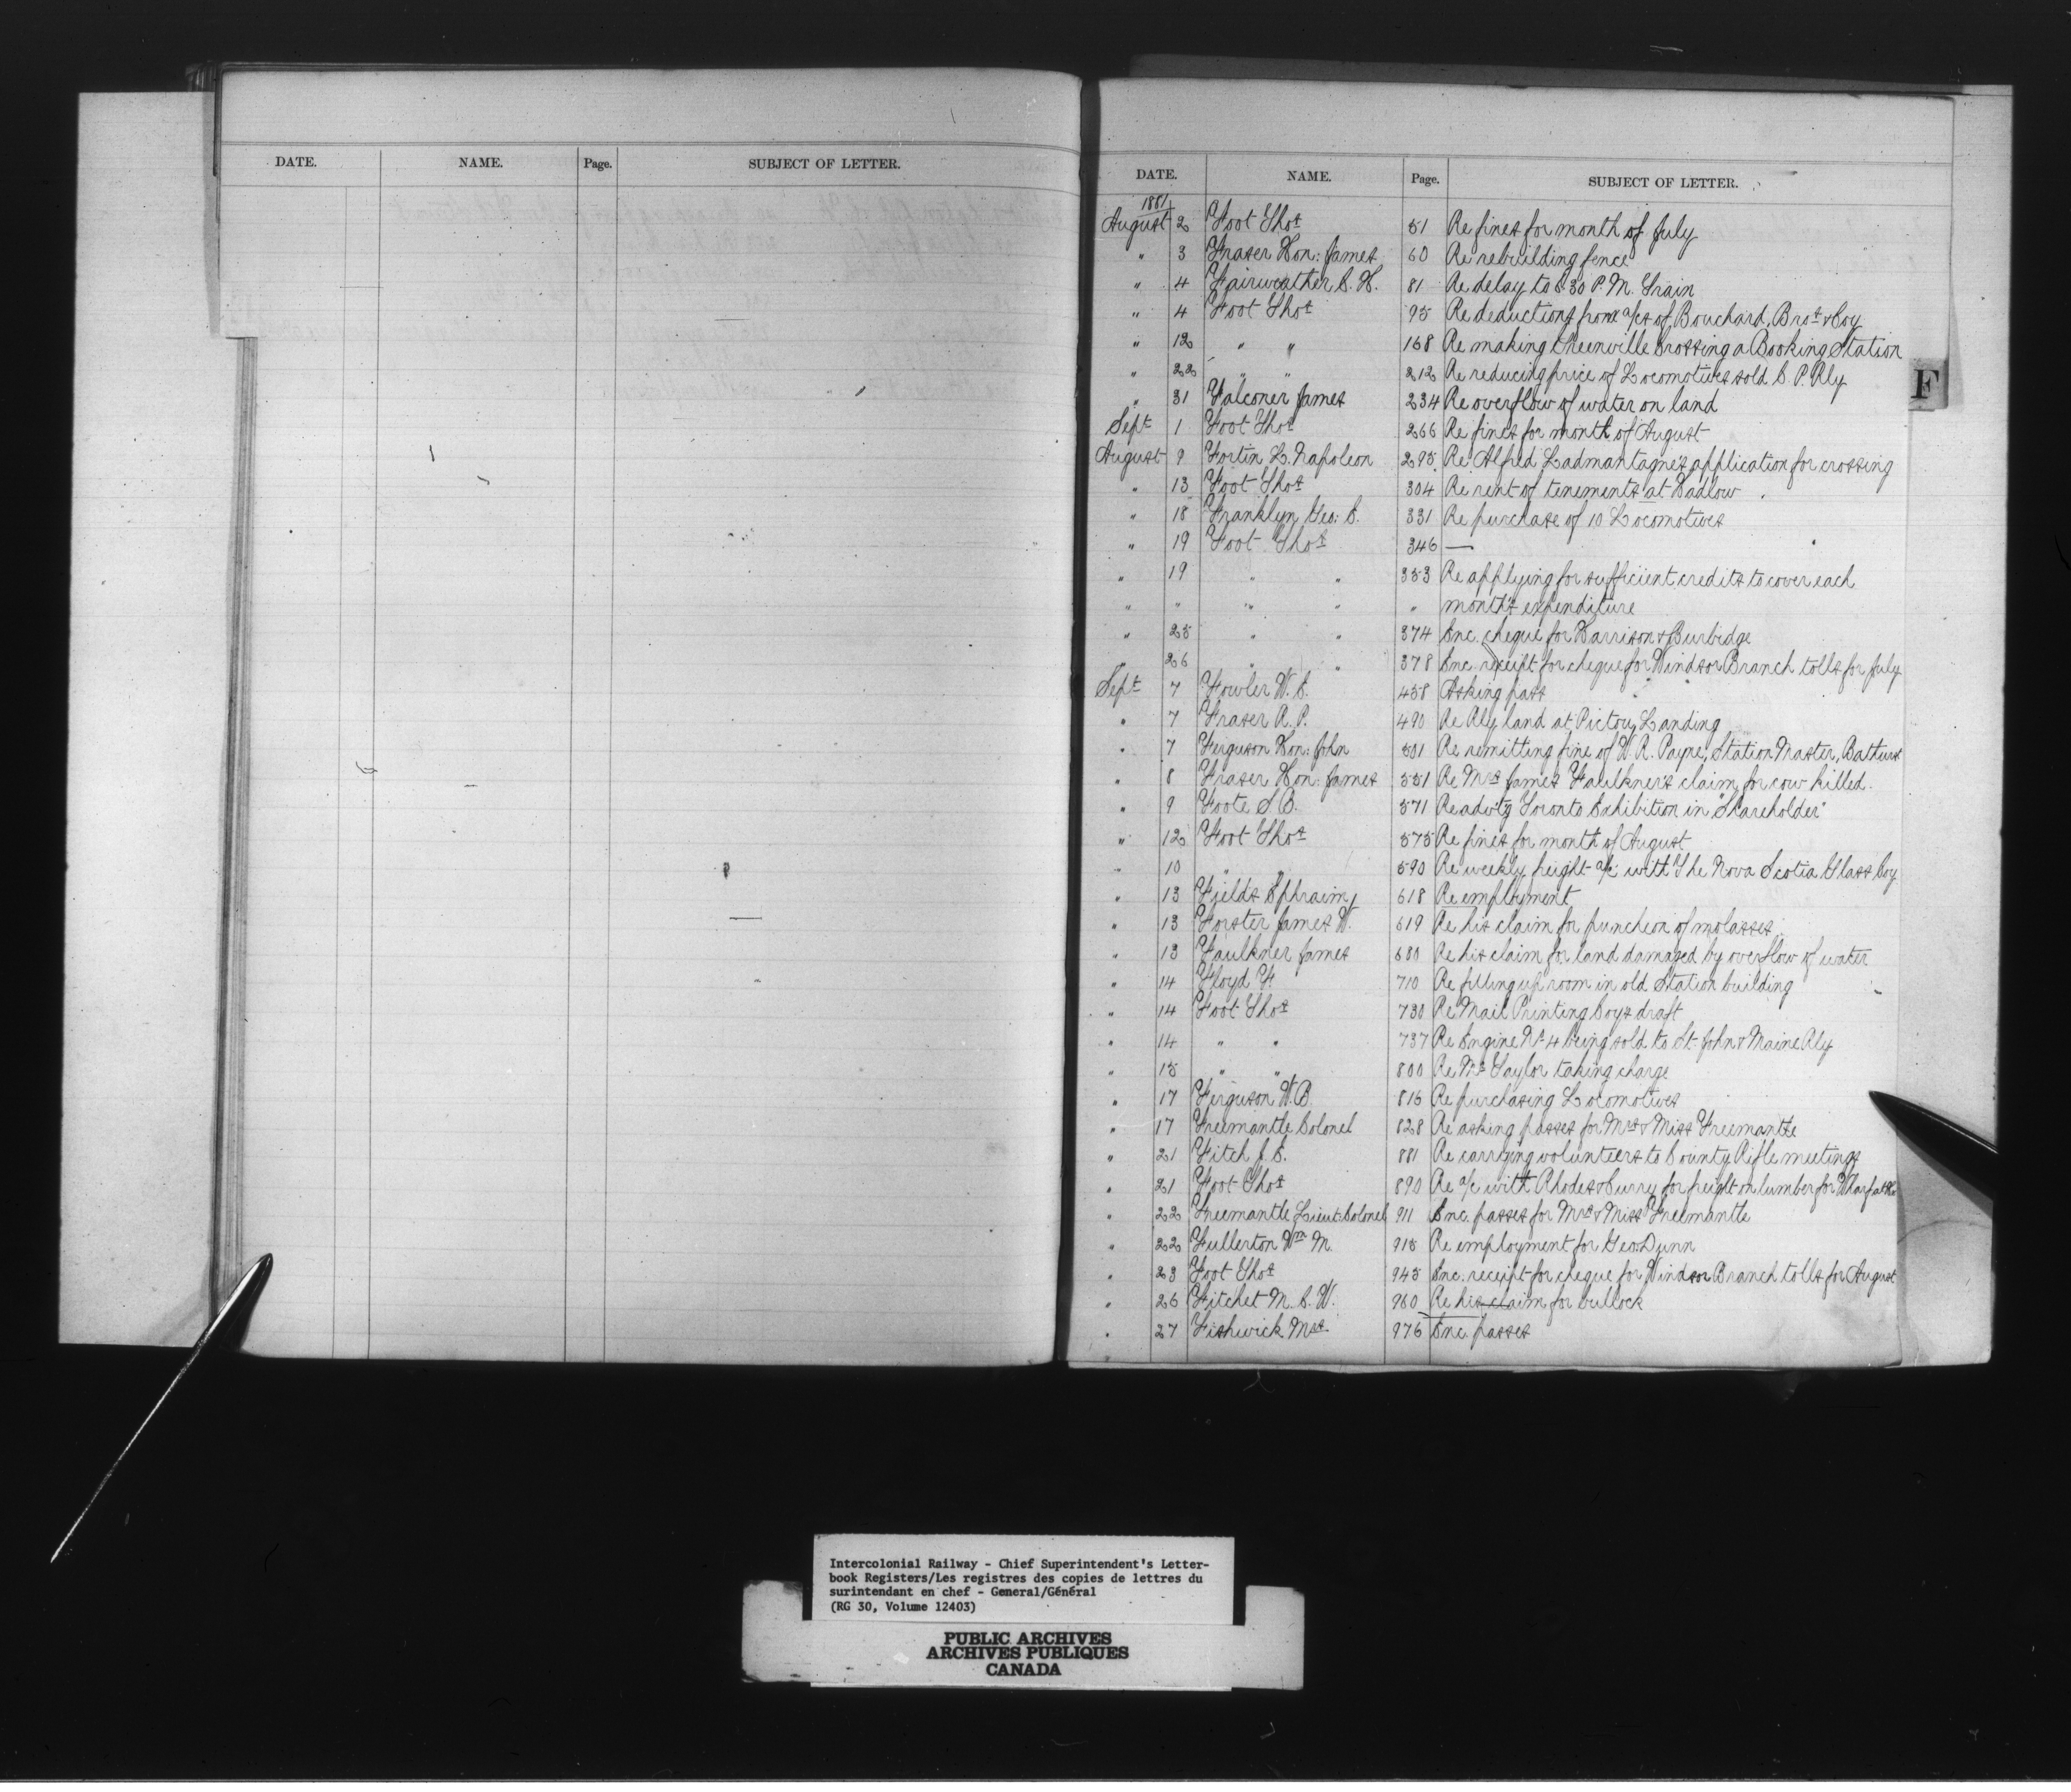 DATE. NAME. Page. SUBJECT OF LETTER.
DATE. NAME. Page. SUBJECT OF LETTER.
1881
August 2 Foot Thos 51 Re fines for month of July
" 3 Fraser Hon: James 60 Re rebuilding fence
" 4 Fairweather C. H. 81 Re delay to 5.30 P.M. Train
" 4 Foot Thos 95 Re deductions from a/cs of Bouchard, Bros & Coy
" 12 " " 168 Re making Greenville Crossing a Booking Station
" 22 " " 212 Re reducing price of Locomotives sold C. P. Rly
" 31 Falconer James 234 Re overflow of water on land
Sept 1 Foot Thos 266 Re fines for month of August
August 9 Fortin L. Napoleon 295 Re Alfred Ladmantagne's application for crossing
" 13 Foot Thos 304 Re rent of tenements at Hadlow
" 18 Franklyn Geo: E. 331 Re purchase of 10 Locomotives
" 19 Foot Thos 346 —
" 19 " " 353 Re applying for sufficient credits to cover each
" " " " " month's expenditure
" 25 " " 374 Enc. cheque for Harrison & Burbidge
" 26 " " 378 Enc. receipt for cheque for Windsor Branch tolls for July
Sept 7 Fowler W. C. 458 Asking pass
" 7 Fraser A. P. 490 Re Rly land at Pictou Landing
" 7 Ferguson Hon: John 501 Re remitting fine of W. R. Payne, Station Master, Bathurst
" 8 Fraser Hon: James 551 Re Mrs James Faulkner's claim for cow killed.
" 9 Foote S. B. 571 Re advtg Toronto Exhibition in "Shareholder"
" 12 Foot Thos 575 Re fines for month of August
" 10 " " 590 Re weekly freight a/c with The Nova Scotia Glass Coy
" 13 Fields Ephraim 618 Re employment
" 13 Forster James W. 619 Re his claim for puncheon of molasses
" 13 Faulkner James 680 Re his claim for land damaged by overflow of water
" 14 Floyd F. 710 Re filling up room in old Station building
" 14 Foot Thos 730 Re Mail Printing Coy's draft
" 14 " " 737 Re Engine No 4 being sold to St. John & Maine Rly
" 15 " " 800 Re Mr Taylor taking charge
" 17 Ferguson W. B. 816 Re purchasing Locomotives
" 17 Freemantle Colonel 828 Re asking passes for Mrs & Miss Freemantle
" 21 Fitch J. E. 881 Re carrying volunteers to County Rifle meetings
" 21 Foot Thos 890 Re a/c with Rhodes & Curry for freight on lumber for Wharf at
" 22 Freemantle Lieut: Colonel 911 Enc. passes for Mrs & Miss Freemantle
" 22 Fullerton Wm M. 915 Re employment for Geo: Dunn
" 23 Foot Thos 945 Enc. receipt for cheque for Windsor Branch tolls for August
" 26 Fitchet M. C. W. 960 Re his claim for bullock
" 27 Fishwick Mrs 976 Enc. passes
F
Intercolonial Railway - Chief Superintendent's Letter-
book Registers/Les registres des copies de lettres du
surintendant en chef - General/Général
(RG 30, Volume 12403)
PUBLIC ARCHIVES
ARCHIVES PUBLIQUES
CANADA